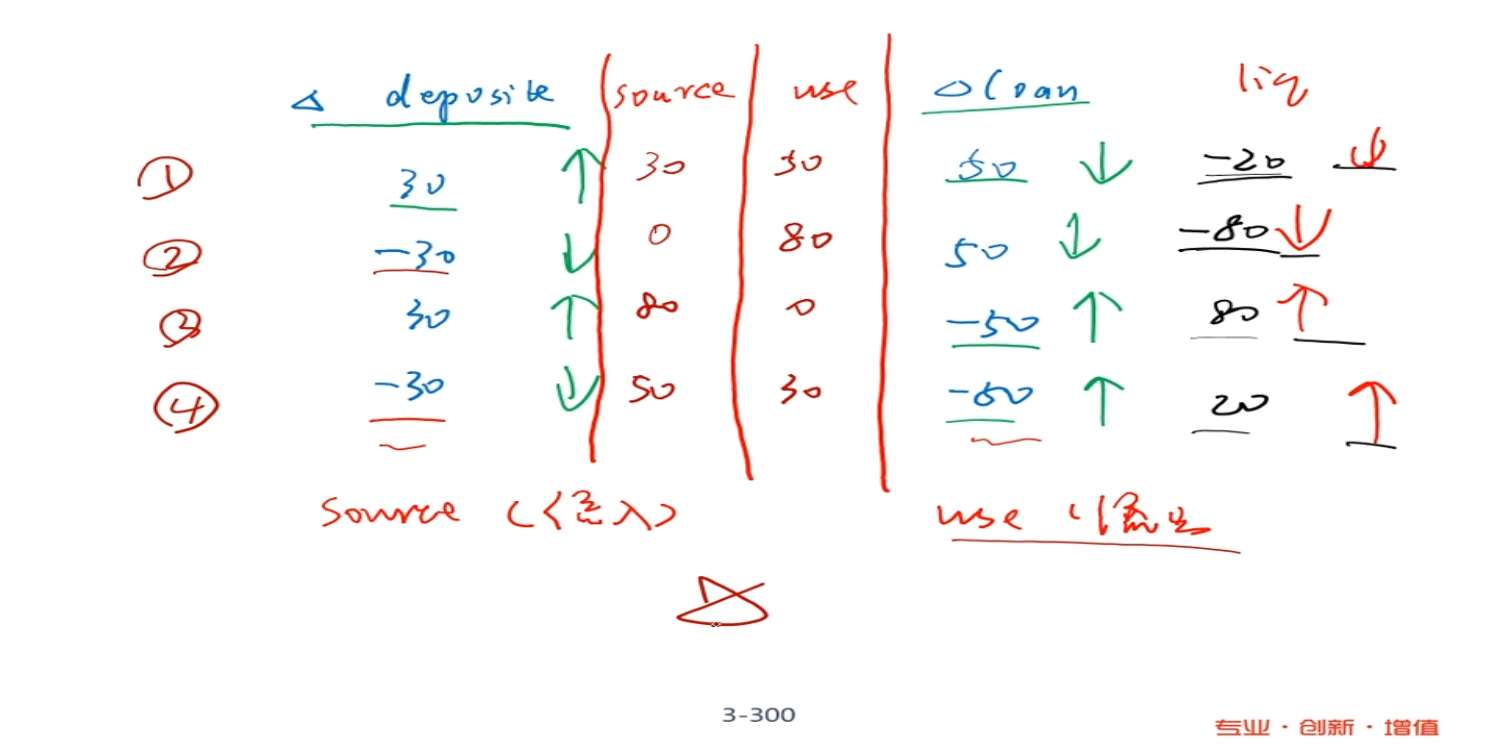 Δ deposite source use Δloan liq
① 30 ↑ 30 50 50 ↓ -20 ↓
② -30 ↓ 0 80 50 ↓ -80 ↓
③ 30 ↑ 80 0 -50 ↑ 80 ↑
④ -30 ↓ 50 30 -50 ↑ 20 ↑
source (流入) use (流出
3-300
专业·创新·增值